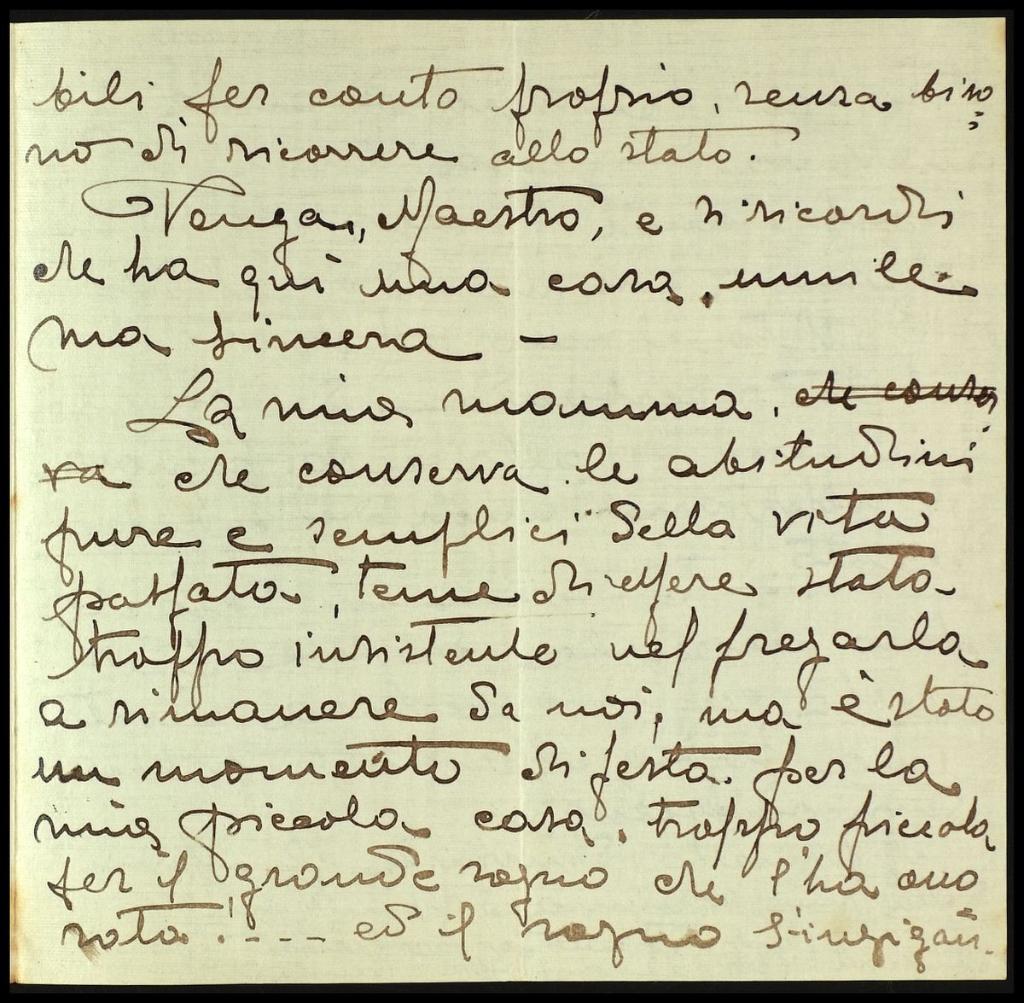 bili per conto proprio, senza biso=
no di ricorrere allo stato.
Venga, Maestro, e si ricordi
che ha qui una casa, umile
ma sincera –
La mia mamma, che conser=
va che conserva le abitudini
pure e semplici della vita
passata, teme di essere stata
troppo insistente nel pregarla
a rimanere da noi, ma è stato
un momento di festa per la
mia piccola casa, troppo piccola
per il grande sogno che l'ha ono
rata!.... ed il sogno s'ingigan-